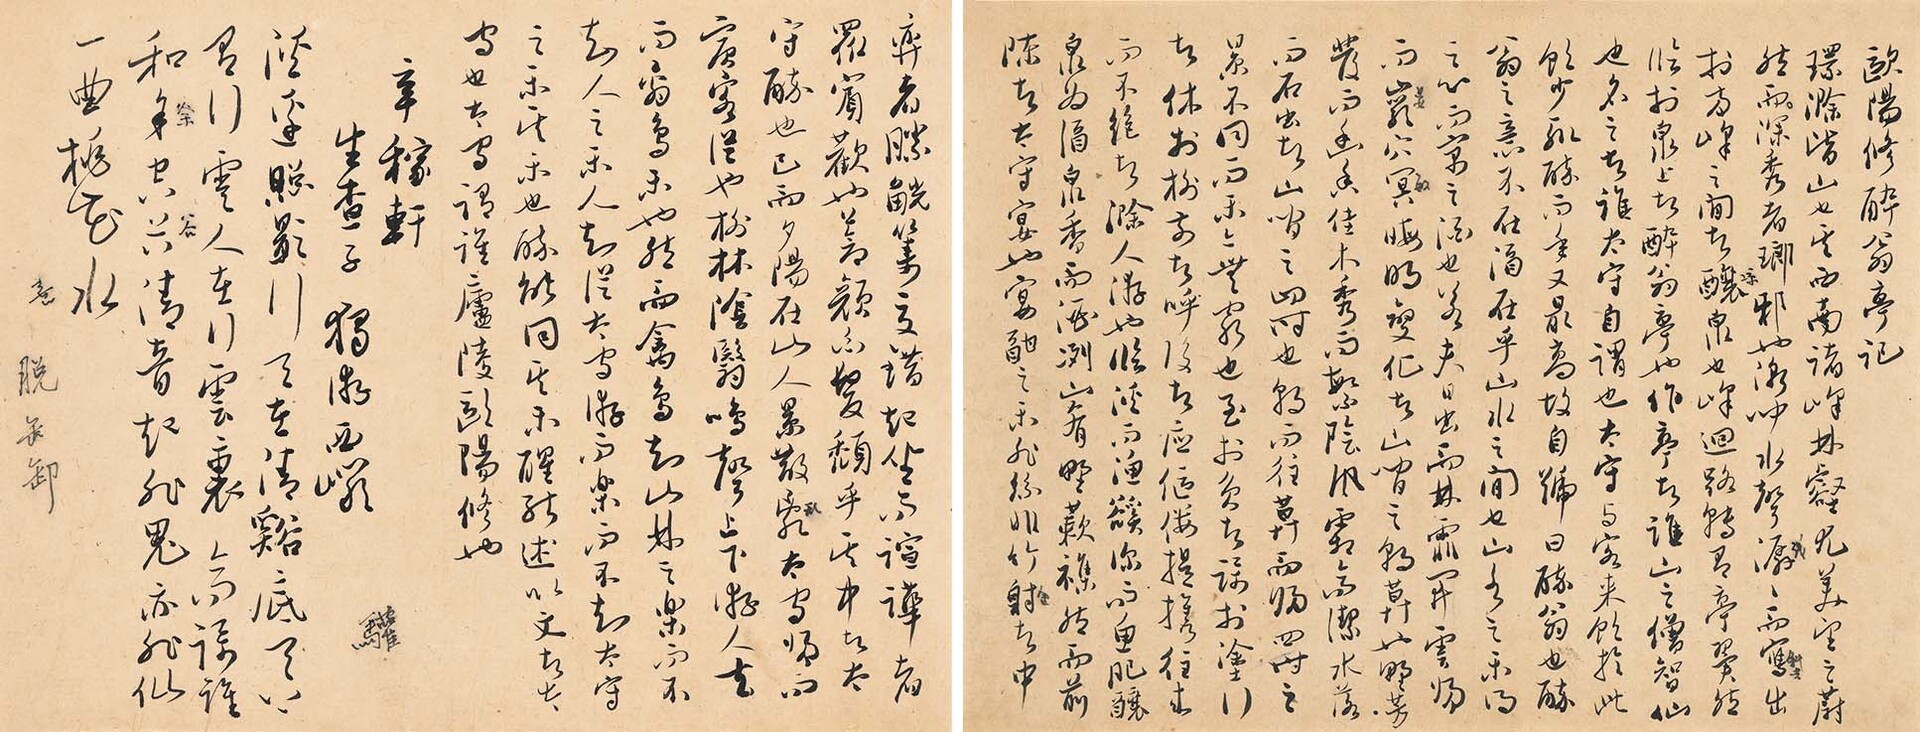 歐陽修醉翁亭記
環滁皆山也其西南諸峰林壑尤美望之蔚
然而深秀者瑯邪也漸聞水聲潺々而瀉出
於兩峰之間者釀泉也峰迴路轉有亭翼然
臨於泉上者醉翁亭也作亭者誰山之僧智仙
也名之者誰太守自謂也太守與客來飲於此
飲少輒醉而年又最高故自號曰醉翁也醉
翁之意不在酒在乎山水之間也山水之樂得
之心而寓之酒也若夫日出而林霏開雲歸
而巖穴冥晦明變化者山間之朝暮也野芳
發而幽香佳木秀而繁陰風霜高潔水落
而石出者山間之四時也朝而往暮而歸四時之
景不同而樂亦無窮也至於負者謌於塗行
者休於樹前者呼後者應傴僂提攜往來
而不絕者滁人游也臨溪而漁谿深而魚肥釀
泉為酒泉香而酒洌山肴野蔌雜然而前
陳者太守宴也宴酣之樂非絲非竹射者中
弈者勝觥籌交錯起坐而諠譁者
眾賓歡也蒼顏白髮頹乎其中者太
守醉也已而夕陽在山人影散亂太守歸而
賓客從也樹林陰翳鳴聲上下游人去
而禽鳥樂也然而禽鳥知山林之樂而不
知人之樂人知從太守游而樂而不知太守
之樂其樂也醉能同其樂醒能述以文者太
守也太守謂誰廬陵歐陽修也
辛稼軒
生查子 獨游西巖
溪邊照影行天在清谿底天上
有行雲人在行雲裏高謌誰
和余空谷清音起非鬼亦非仙
一曲桃花水